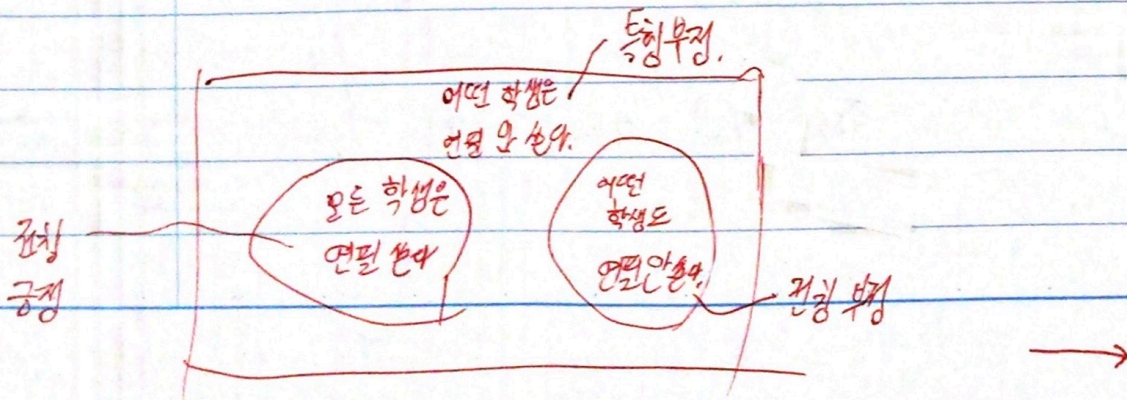 특칭부정.
어떤 학생은
연필 안 쓴다.
모든 학생은
연필 쓴다
어떤
학생도
연필안쓴다.
전칭
긍정
전칭 부정